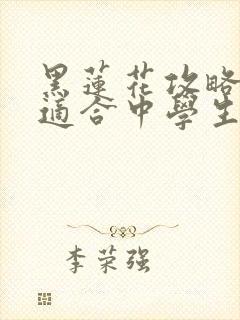 黑蓮花攻略
適合中學生
李荣强